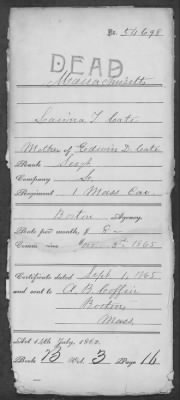 No. 54698
DEAD
Massachusetts
Lavina T. Cate
Mother of Godwin D. Cate
Rank Sergt
Company G
Regiment 1 Mass Cav
Boston Agency.
Rate per month, $ 8 -
Commencing Nov. 3d 1865
Certificate dated Sept. 1, 1865
and sent to A. B. Coffin
Boston
Mass.
Act 14th July, 1862.
Book B Vol. 3 Page 16